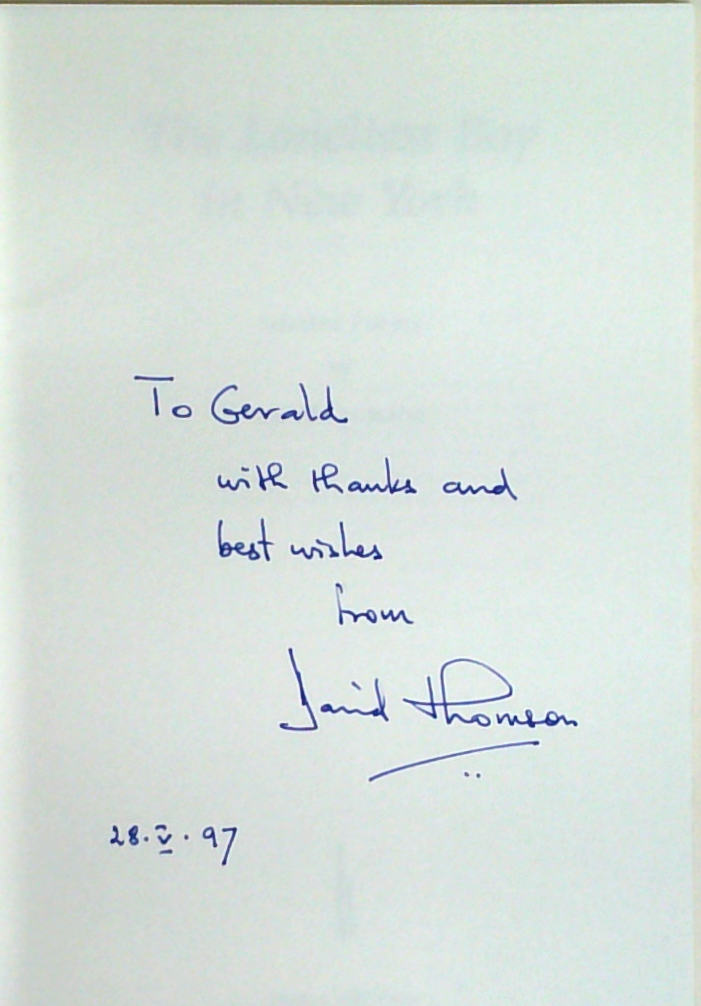 The Loneliest Boy
in New York
To Gerald
with thanks and
best wishes
from
David Thomson
28.V.97